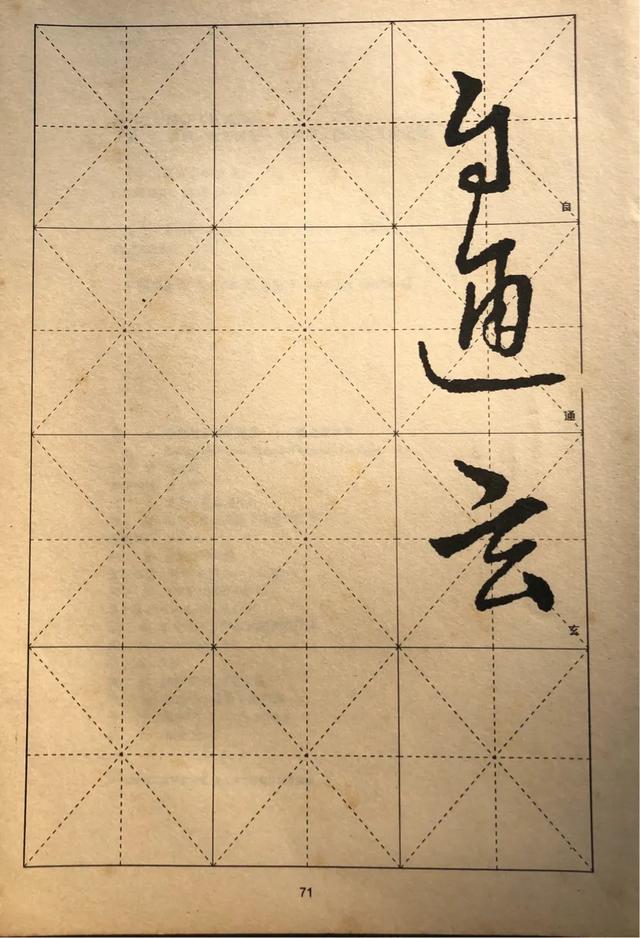 自通玄
自
通
玄
71